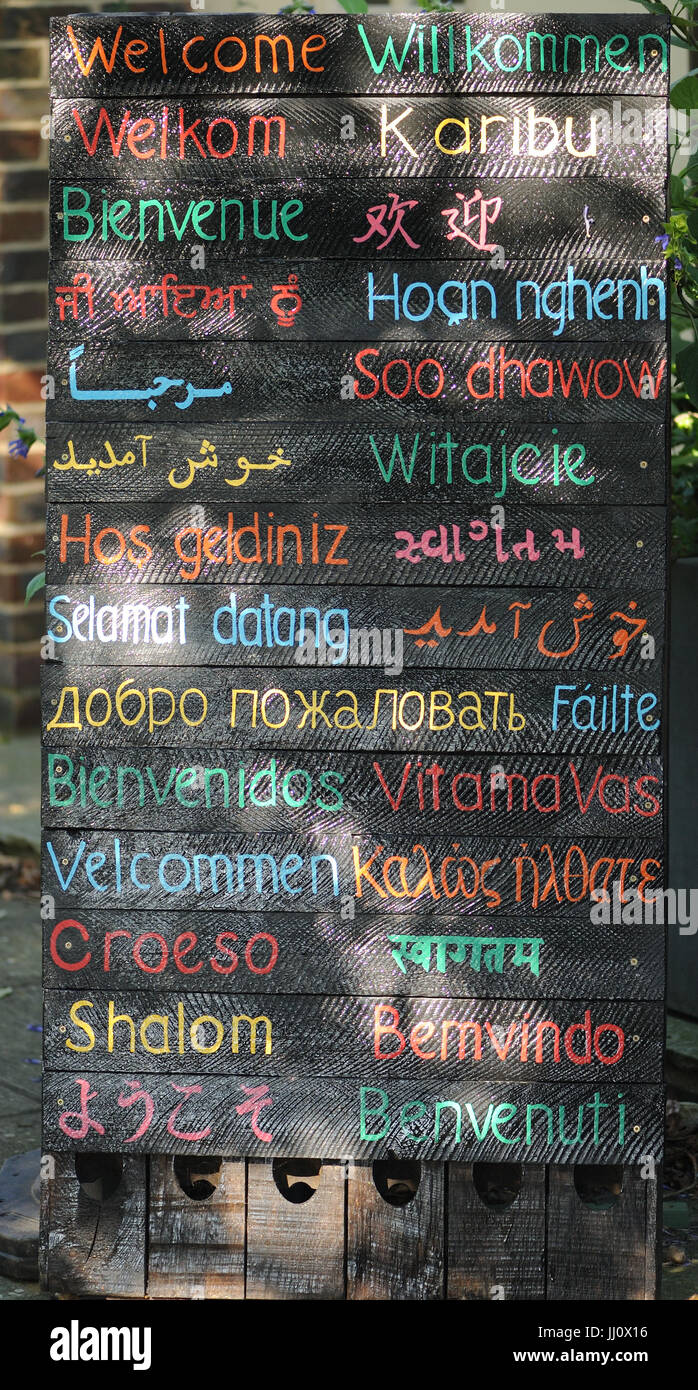 Welcome Willkommen
Welkom Karibu
Bienvenue 欢迎
ਜੀ ਆਇਆਂ ਨੂੰ Hoạn nghenh
مرحباً Soo dhawow
خوش آمدید Witajcie
Hoş geldiniz સ્વાગતમ
Selamat datang خوش آمدید
добро пожаловать Fáilte
Bienvenidos Vitama Vas
Velcommen Καλώς ήλθατε
Croeso स्वागतम
Shalom Bemvindo
ようこそ Benvenuti
alamy
Image ID: JJ0X16
www.alamy.com